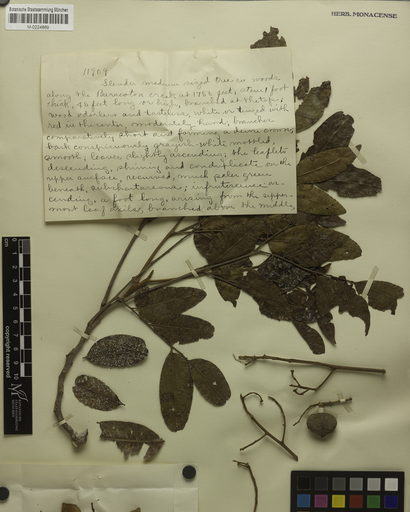 Botanische Staatssammlung München
M-0224869
HERB. MONACENSE.
11808
Slender medium sized tree in woods
along the creek at 1750 feet, stem 1 foot
thick, 40 feet long or high, branched at the top;
wood odorless and tasteless, white or tinged with
red in the center, moderately hard; branches
short and forming a dense crown;
bark conspicuously grayish-white mottled,
smooth; leaves slightly ascending, the leaflets
descending, shining and conduplicate on the
upper surface, recurved, much paler green
beneath, subchartaceous; infrutescence as-
cending, a foot long, arising from the upper-
most leaf axils, branched above the middle,
copyright reserved